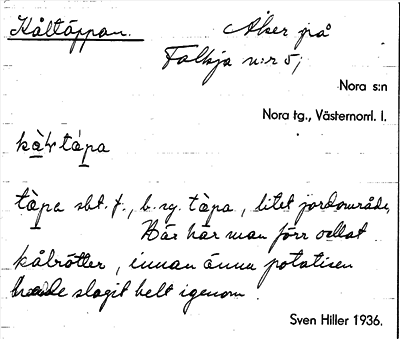 Kåltäppan. Åker på
Falkja n:r 5;
Nora s:n
Nora tg., Västernorrl. l.
kå̀ļtápa
tàpa sbt. f., b. sg. tàpa, litet jordområde,
Här har man förr odlat
kålrötter, innan ännu potatisen
hade slagit helt igenom.
Sven Hiller 1936.